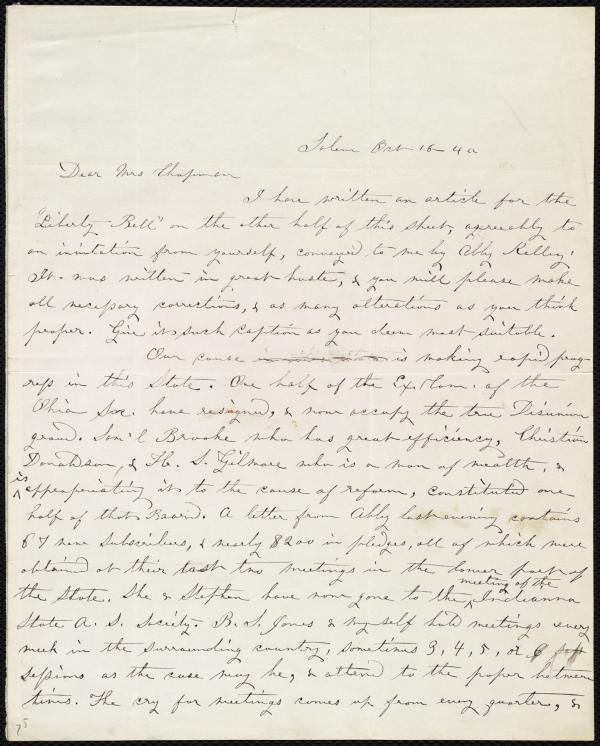 Salem Oct 16 - 4
Dear Mrs Chapman
I have written an article for the
"Liberty Bell" on the other half of this sheet, agreeably to
an invitation from yourself, conveyed to me by Abby Kelley.
It was written in great haste, & you will please make
all necessary corrections, & as many alterations as you think
proper. Give it such caption as you deem most suitable.
Our cause is making rapid prog-
ress in this State. One half of the Ex. Com: of the
Ohio Soc. have resigned, & now occupy the true Disunion
groun. Sam'l Brooke who has great efficiency, Christian
Donaldson, & H. S. Gilmore who is a man of wealth, &
is appropriating it to the cause of reform, constituted one
half of that Board. A letter from Abby last evening contains
67 new subscribers, & nearly $200 in pledges, all of which were
obtained at their last two meetings in the lower part of
the State. She & Stephen have now gone to the meeting of the Indianna
State A. S. Society. B. S. Jones & myself hold meetings every
week in the surrounding country, sometimes 3, 4, 5, or 6
sessions as the case may be, & attend to the paper between
times. The cry for meetings comes up from every quarter, &
75